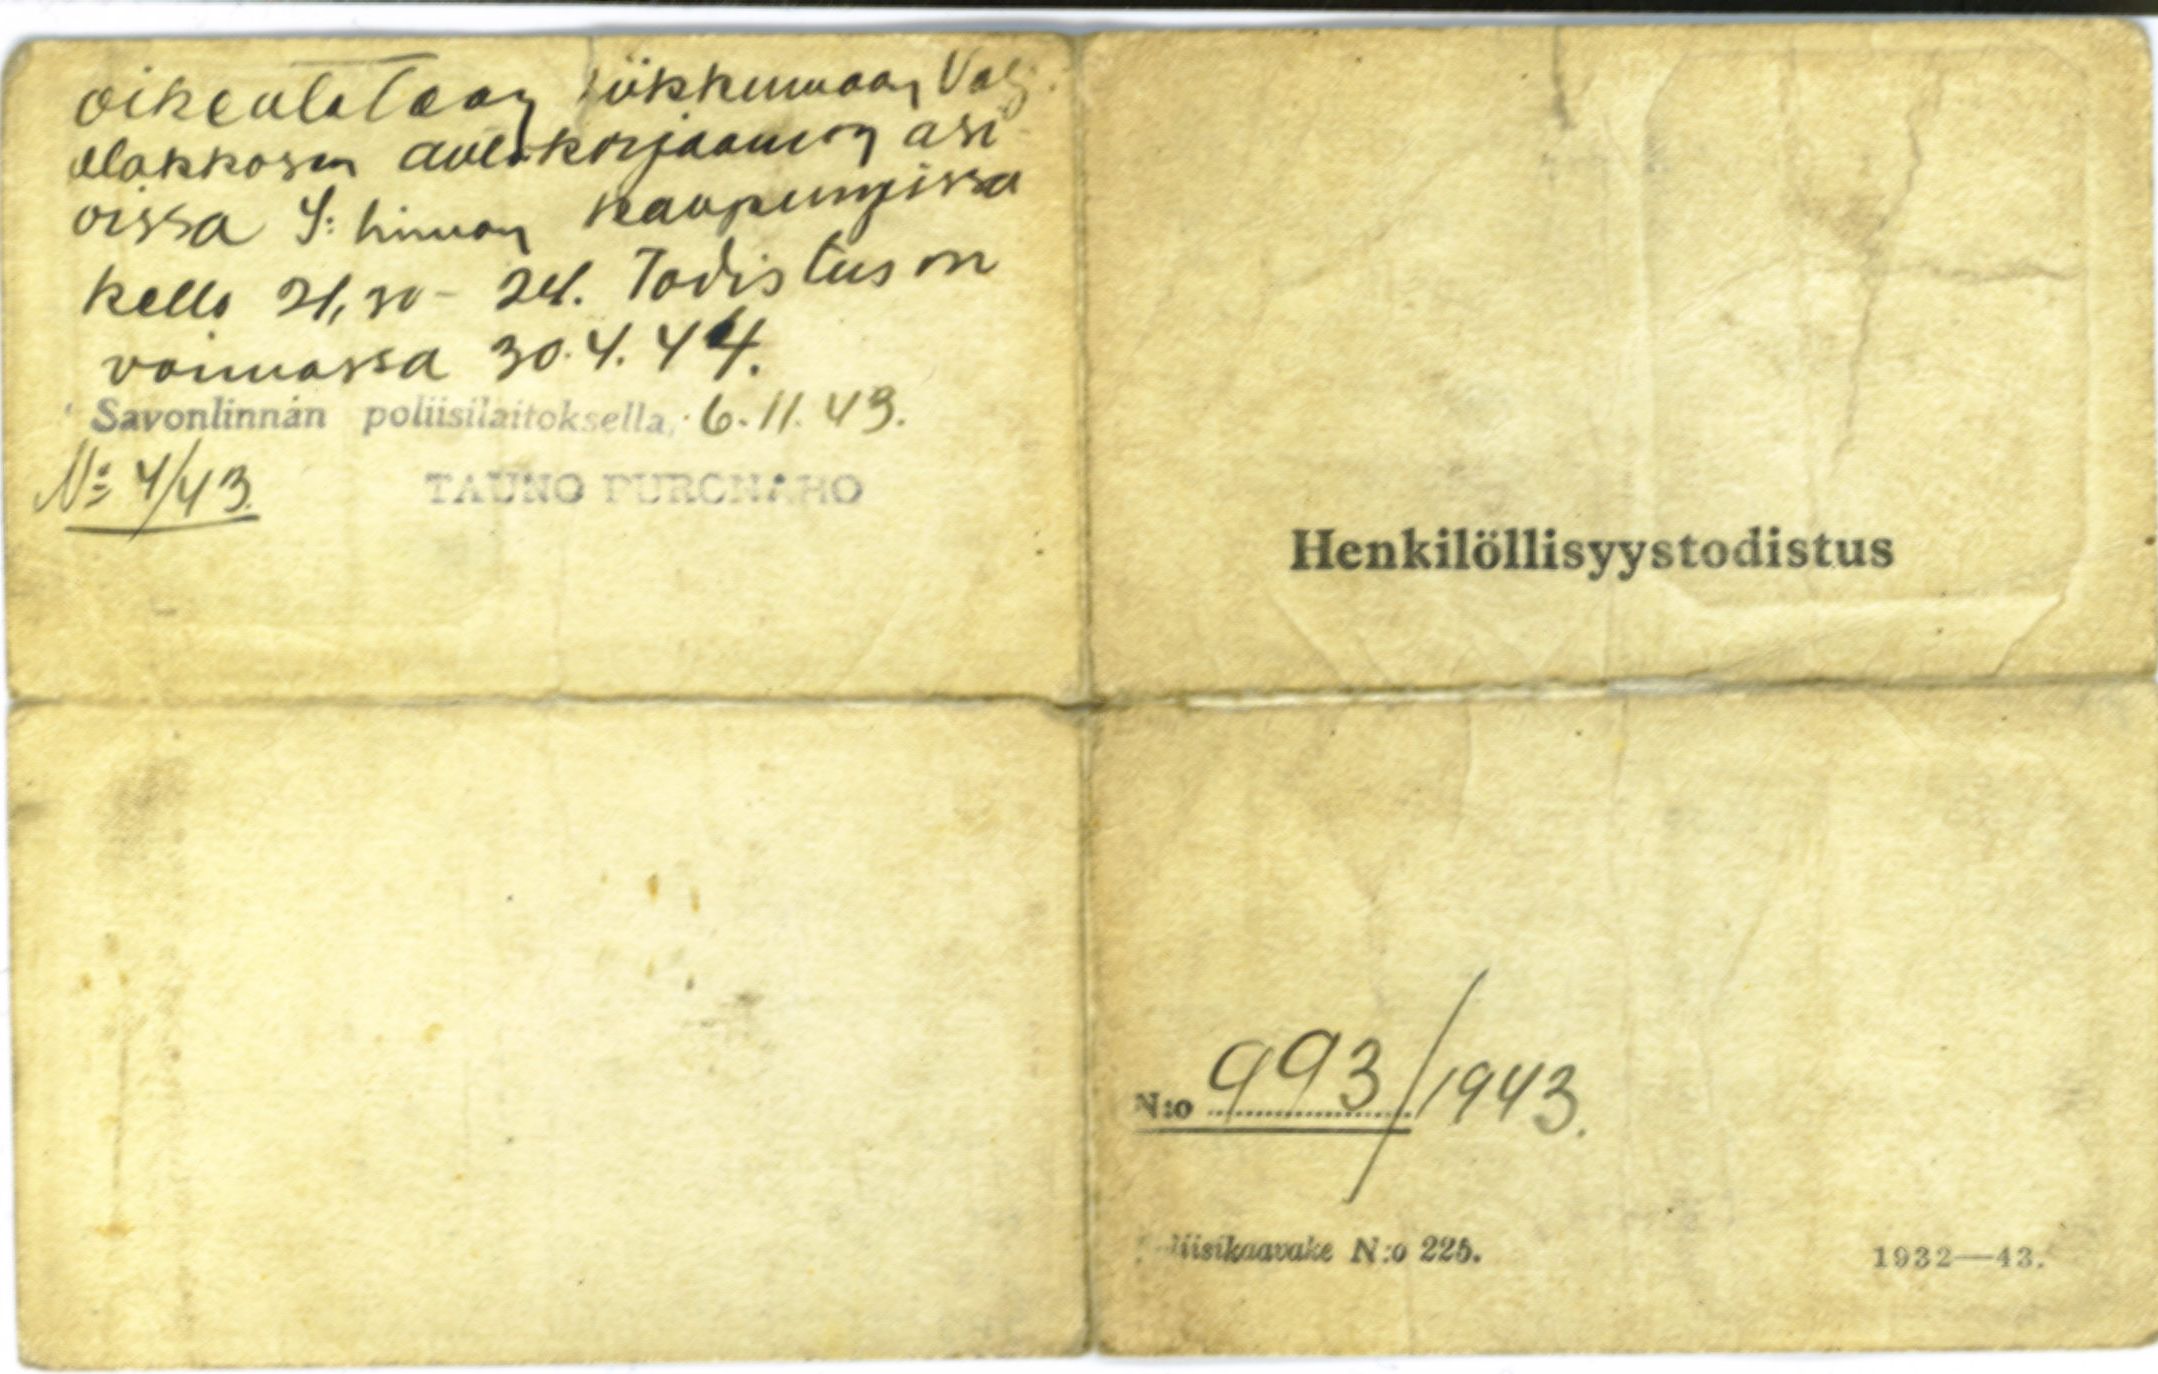 oikeutetaan liikkumaan Valj.
Makkosen autokorjaamon asi
oissa S:linnan kaupungissa
kello 21,30 - 24. Todistus on
voimassa 30.4.44.
Savonlinnan poliisilaitoksella, 6.11.43.
No 4/43.
TAUNO PURONAHO
Henkilöllisyystodistus
N:o 993/1943.
liisikaavake N:o 225.
1932—43.